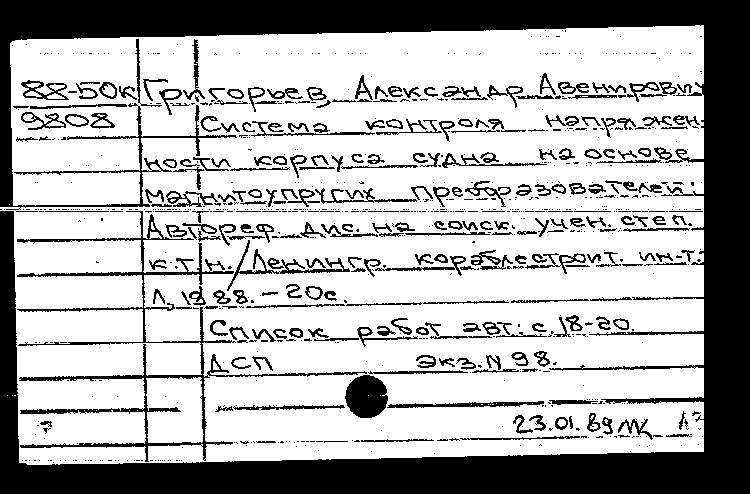 88-50к Григорьев, Александр Авенирович
9808 Система контроля напряжен-
ности корпуса судна на основе
магнитоупругих преобразователей:
Автореф. дис. на соиск. учен. степ.
к.т.н. / Ленингр. кораблестроит. ин-т.
Л, 1988. – 20с.
Список работ авт.: с. 18-20.
ДСП экз. N 98.
23.01.89